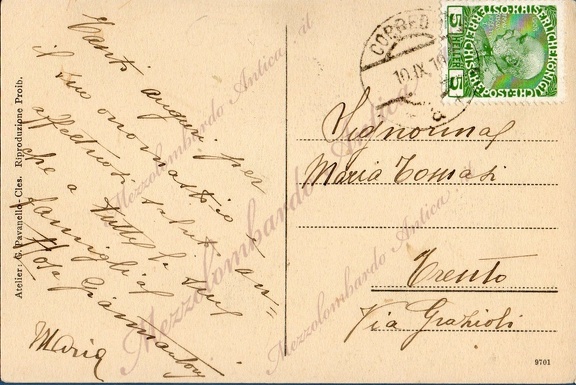 Atelier: G. Pavanello-Cles. Riproduzione Proib.
Tanti auguri per
il suo onomastico
affettuosi saluti an=
che a tutta la sua
famiglia
Rosa Giannantony
Maria
CORREDO
10.IX.19
5 HELLER 5
KAISERLICHE KÖNIGLICHE ÖSTERREICHISCHE POST
Signorina
Maria Tomasi
Trento
Via Grazioli
9701
Mezzolombardo Antica .it
Mezzolombardo Antica .it
Mezzolombardo Antica .it